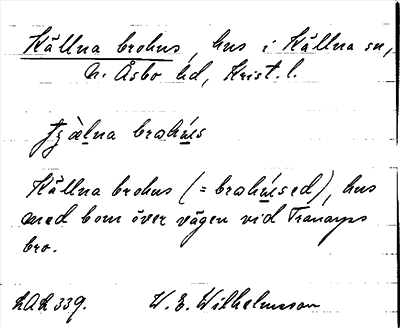 Källna brohus, hus i Källna sn,
N. Åsbo hd, Krist. l.
brahus
Källna brohus (= brahused), hus
med bom över vägen vid Tranarps
bro.
LAL 339. W. E. Wilhelmsson